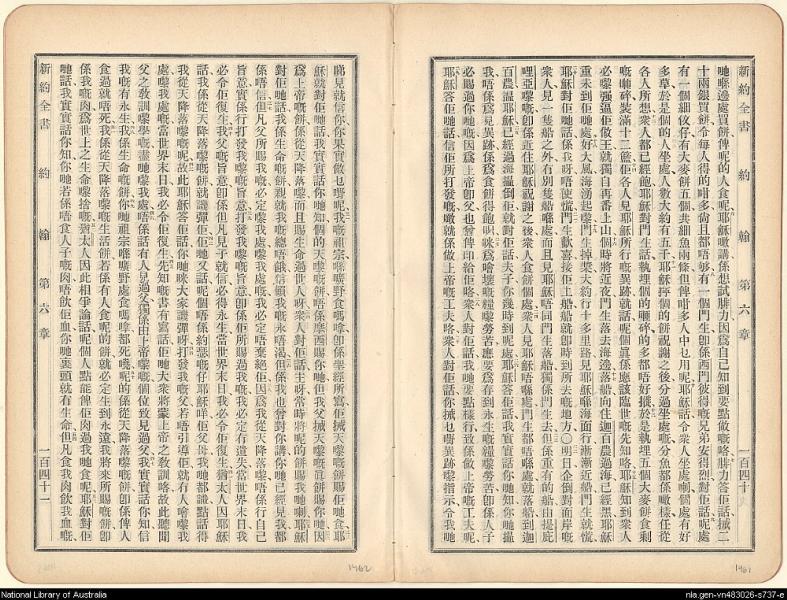 新約全書 約翰 第六章 一百四十
哋喺邊處買餅俾呢的人食呢耶穌噉講係想試腓力因爲自己知到要點做嘅咯腓力答佢話搣二
十兩銀買餅令每人得的咁多尙且都唔够有一個門生卽係西門彼得嘅兄弟安得烈對佢話呢處
有一個細伩仔有大麥餅五個共細魚兩條但俾咁多人中乜用呢耶穌話令衆人坐處喇個處有好
多草於是個的人坐處人數大約有五千耶穌捋個的餅祝謝之後分過坐處嘅分魚都係噉樣任從
各人所想衆人都已經飽耶穌對門生話執埋個的碎的多都唔好撒於是執埋五個大麥餅食剩
嘅碎裝滿十二籃佢各人見耶穌所行嘅異跡就話呢個眞係應該臨世嘅先知咯耶穌知到衆人
必嚟强逼佢做王就獨自再番上山個時將近夜門生落去海邊落船向住迦百農過海已經黑耶穌
重未到佢哋處好大風海湧起嚟門生掉槳大約行十多里路見耶穌喺海面行漸漸近船門生就慌
耶穌對佢哋話係我呀唔使慌門生歡喜接佢上船船就卽時到所去嘅地方〇明日企倒對面岸嘅
衆人見一隻船之外冇別隻船喺處而且見耶穌唔同門生落船獨係門生去但係重有的船由提庇
哩亞嚟嘅卽係近住耶穌祝謝之後衆人食餅個處衆人見耶穌唔喺處門生都唔喺處就落船到迦
百農揾耶穌已經過海揾倒佢就對佢話夫子你幾時到呢處耶穌答佢話我實實話你哋知你哋揾
我唔係爲見異跡係爲食餅得飽啫咪爲噲壞嘅糧嚟勞苦應要爲存到永生嘅糧嚟勞苦卽係人子
必賜過你哋嘅因爲上帝卽父也曾俾印給佢咯衆人對佢話我哋要點樣行致係做上帝嘅工夫呢
耶穌答佢哋話信佢所打發嘅噉就係做上帝嘅工夫咯衆人對佢話你搣乜嘢異跡嚟指示令我哋
1461
睇見就信你你果實做乜嘢呢我嘅祖宗喺曠野食嗎嗱卽係學經所寫佢搣天嚟嘅餅賜佢哋食耶
穌就對佢哋話我實實話你哋知個的天嚟嘅餅唔係摩西賜你哋但我父搣天嚟嘅眞餅賜你哋因
爲上帝嘅餅係從天降落嚟而且賜生命過世人呀衆人對佢話主呀常時將呢的餅賜我哋喇耶穌
對佢哋話我係生命嘅餅親就我嘅總唔餓信賴我嘅永唔渴但係我也曾對你講你哋已經見我都
係唔信但凡父所賜我嘅必定嚟我處嚟我處嘅我必定唔棄絕佢因爲我從天降落嚟唔係行自己
旨意係行打發我嚟嘅旨意打發我嚟嘅旨意卽係佢所賜過我嘅我必定冇遺失當世界末日我
必令佢復生我父嘅旨意卽係但凡見子就信必得永生當世界末日我必令佢復生猶太人因耶穌
話我係從天降落嚟嘅餅就譏彈佢佢哋又話呢個唔係約瑟嘅仔耶穌咩佢父母我哋都識點話得
我從天降落嚟嘅呢故此耶穌答佢話你哋咪大家譏彈呀打發我嘅父若唔引導佢就冇人噲嚟我
處嚟我處嘅當世界末日我必令佢復生先知嘅書有寫話佢哋大衆將蒙上帝之敎訓咯故此聽聞
父之敎訓嚟學嘅盡哋嚟我處唔係話有人見過父獨係由上帝嚟嘅個位致見過父我實實話你知信
我嘅有永生我係生命嘅餅你哋祖宗喺曠野處食嗎嗱都死嘵呢的係從天降落嚟嘅餅卽係俾人
食過就唔死我係從天降落嚟嘅生活餅若係有人食呢的餅就必定生到永遠我將來所賜嘅餅卽
係我嘅肉爲世上之生命嚟捨嘅猶太人因此相爭論話呢個人點能俾佢肉過我哋食呢耶穌對佢
哋話我實實話你知你哋若係唔食人子嘅肉唔飲佢血你哋裏頭就冇生命但凡食我肉飲我血嘅
新約全書 約翰 第六章 一百四十一
1462
National Library of Australia
nla.gen-vn483026-s737-e